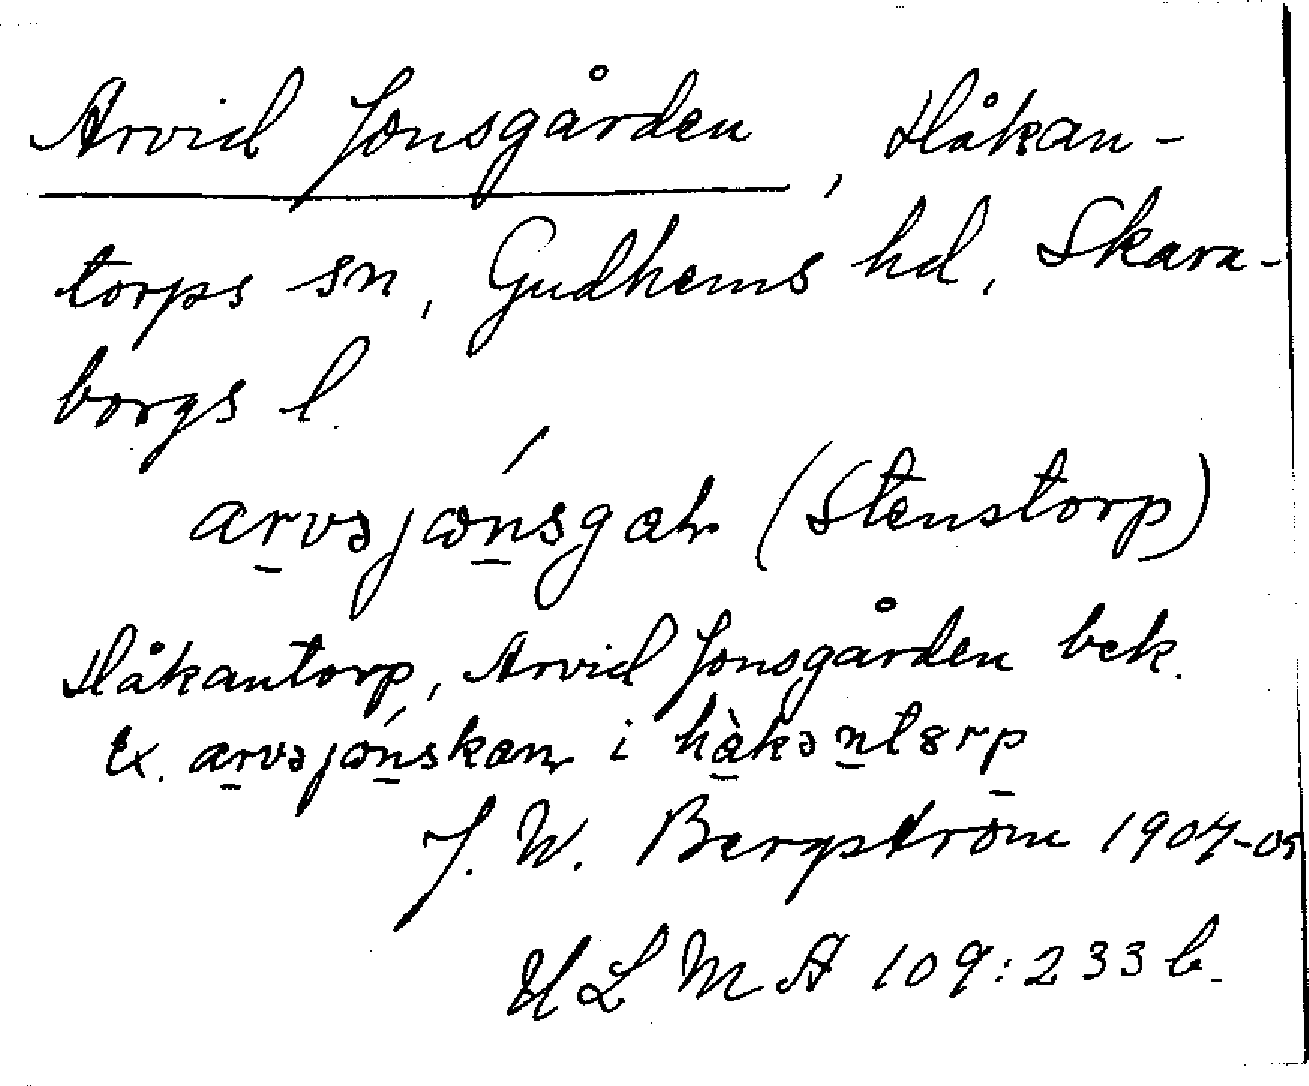 Arvid Jonsgården, Håkan-
torps sn, Gudhems hd, Skara-
borgs l.
arvəjɷ́nsgaɦ (Stenstorp)
Håkantorp, Arvid Jonsgården bek.
Ex. arvəjɷ́nskan i hàkəntɞrp
J. W. Bergström 1904-05
ULMA 109:233 b.